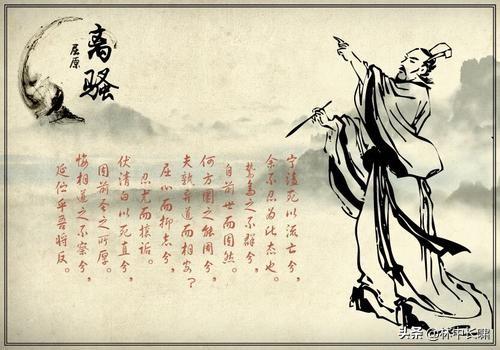 离骚
屈原
宁溘死以流亡兮，
余不忍为此态也。
鸷鸟之不群兮，
自前世而固然。
何方圜之能周兮，
夫孰异道而相安？
屈心而抑志兮，
忍尤而攘诟。
伏清白以死直兮，
固前圣之所厚。
悔相道之不察兮，
延伫乎吾将反。
头条 @林中长啸